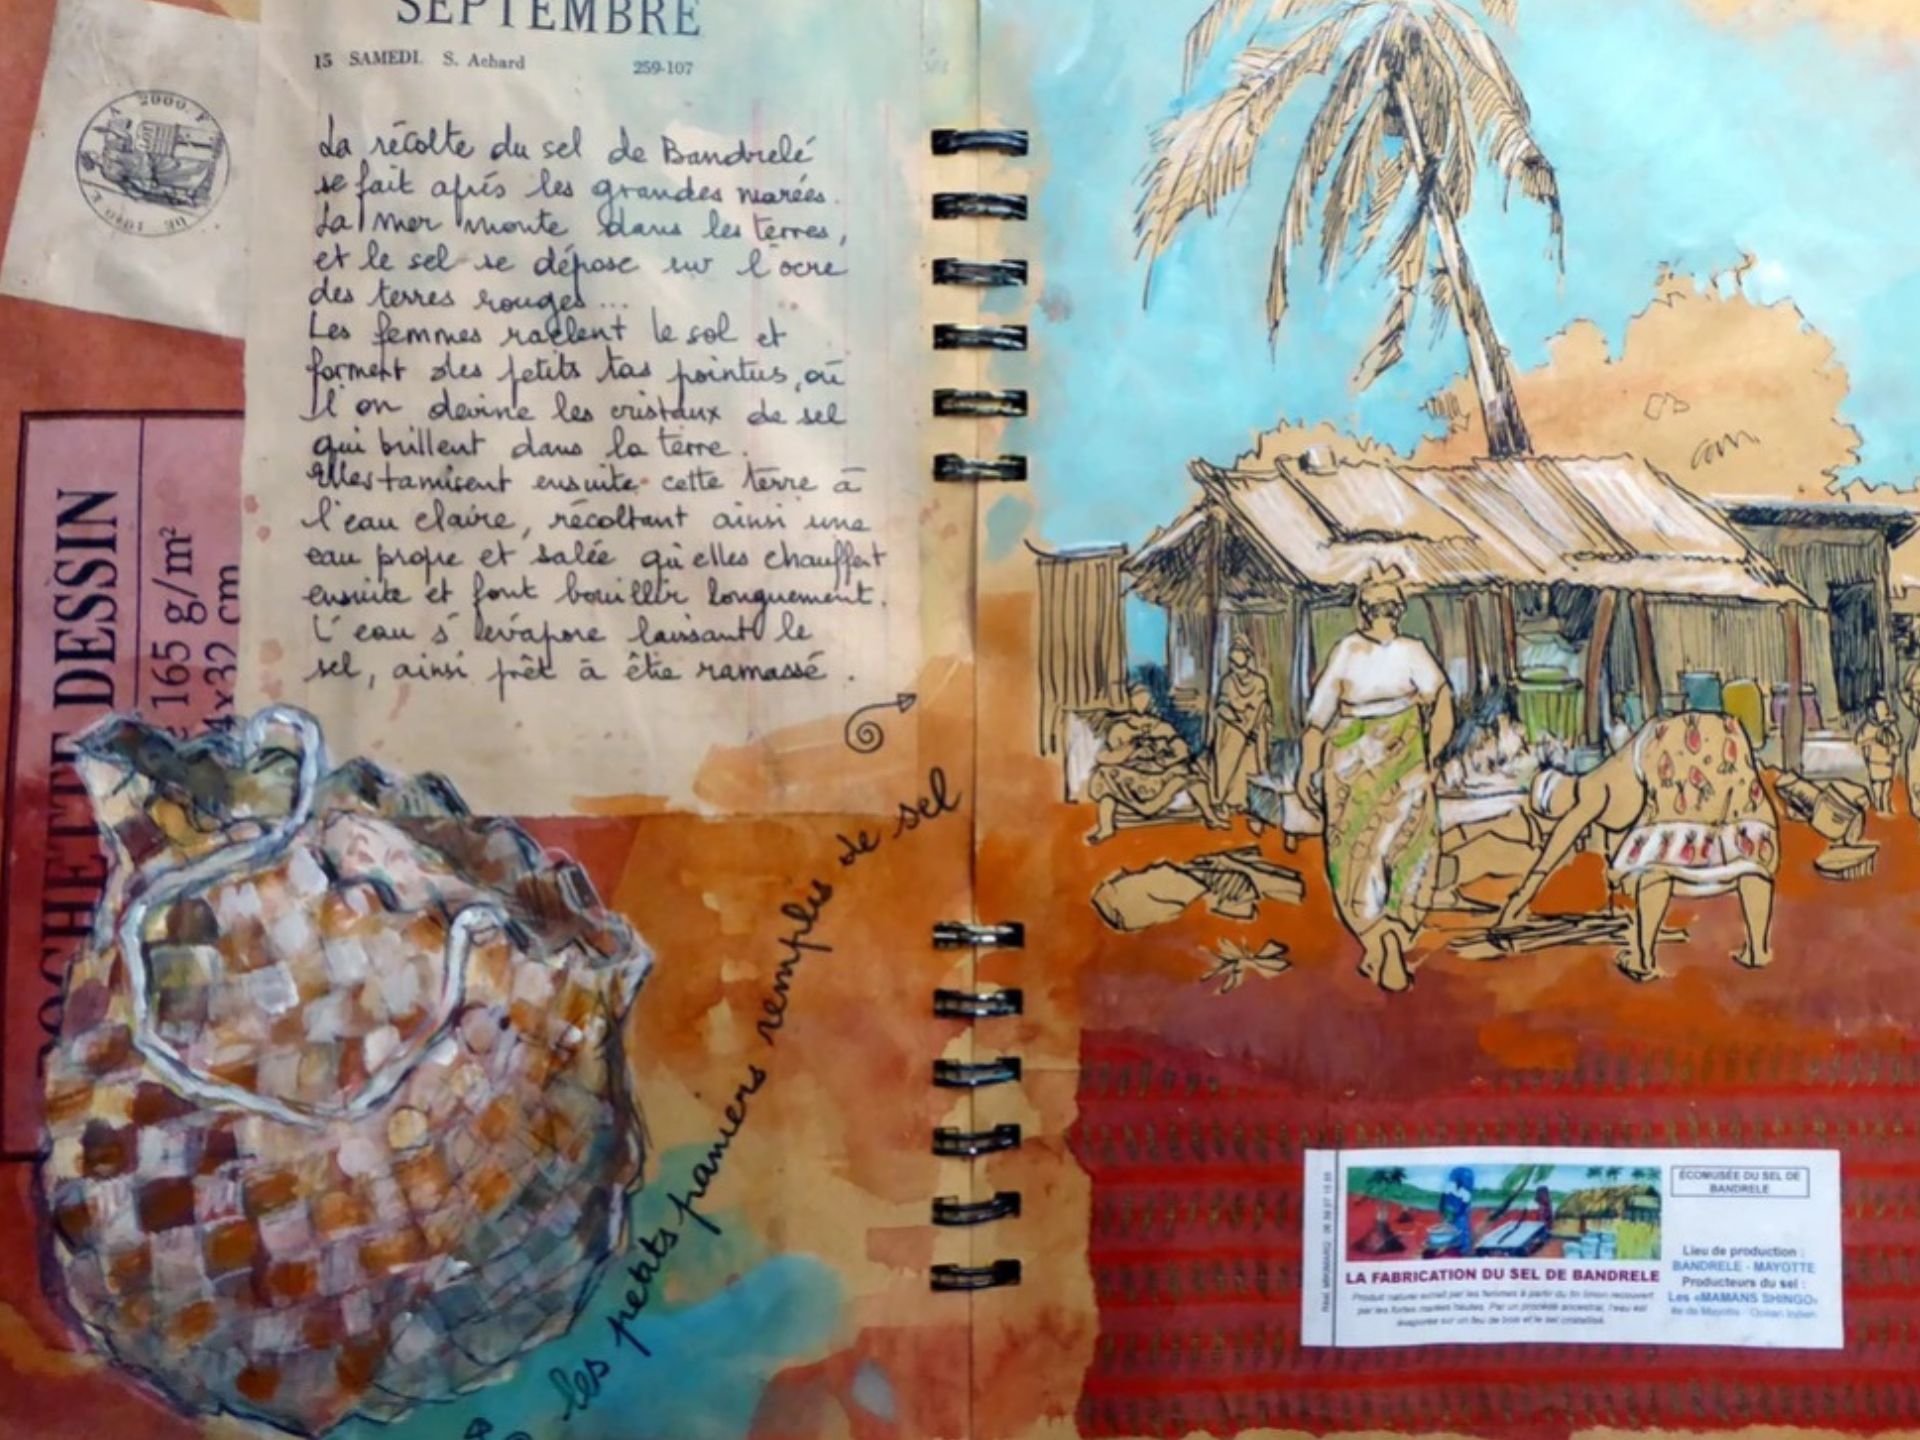 SEPTEMBRE
15 SAMEDI. S. Achard 259-107
La récolte du sel de Bandrelé
se fait après les grandes marées.
La mer monte dans les terres,
et le sel se dépose sur l'ocre
des terres rouges...
Les femmes raclent le sol et
forment des petits tas pointus, où
l'on devine les cristaux de sel
qui brillent dans la terre.
Elles tamisent ensuite cette terre à
l'eau claire, récoltant ainsi une
eau propre et salée qu'elles chauffent
ensuite et font bouillir longuement.
L'eau s'évapore laissant le
sel, ainsi prêt à être ramassé.
2000 F
POCHETTE DESSIN
165 g/m²
4x32 cm
les petits paniers remplis de sel
ÉCOMUSÉE DU SEL DE
BANDRELE
LA FABRICATION DU SEL DE BANDRELE
Produit naturel extrait par les femmes à partir du fin limon recouvert
par les fortes marées hautes. Par un procédé ancestral, l'eau est
évaporée sur un feu de bois et le sel cristallisé.
Lieu de production :
BANDRELE - MAYOTTE
Producteurs du sel :
Les «MAMANS SHINGO»
Ile de Mayotte - Océan Indien